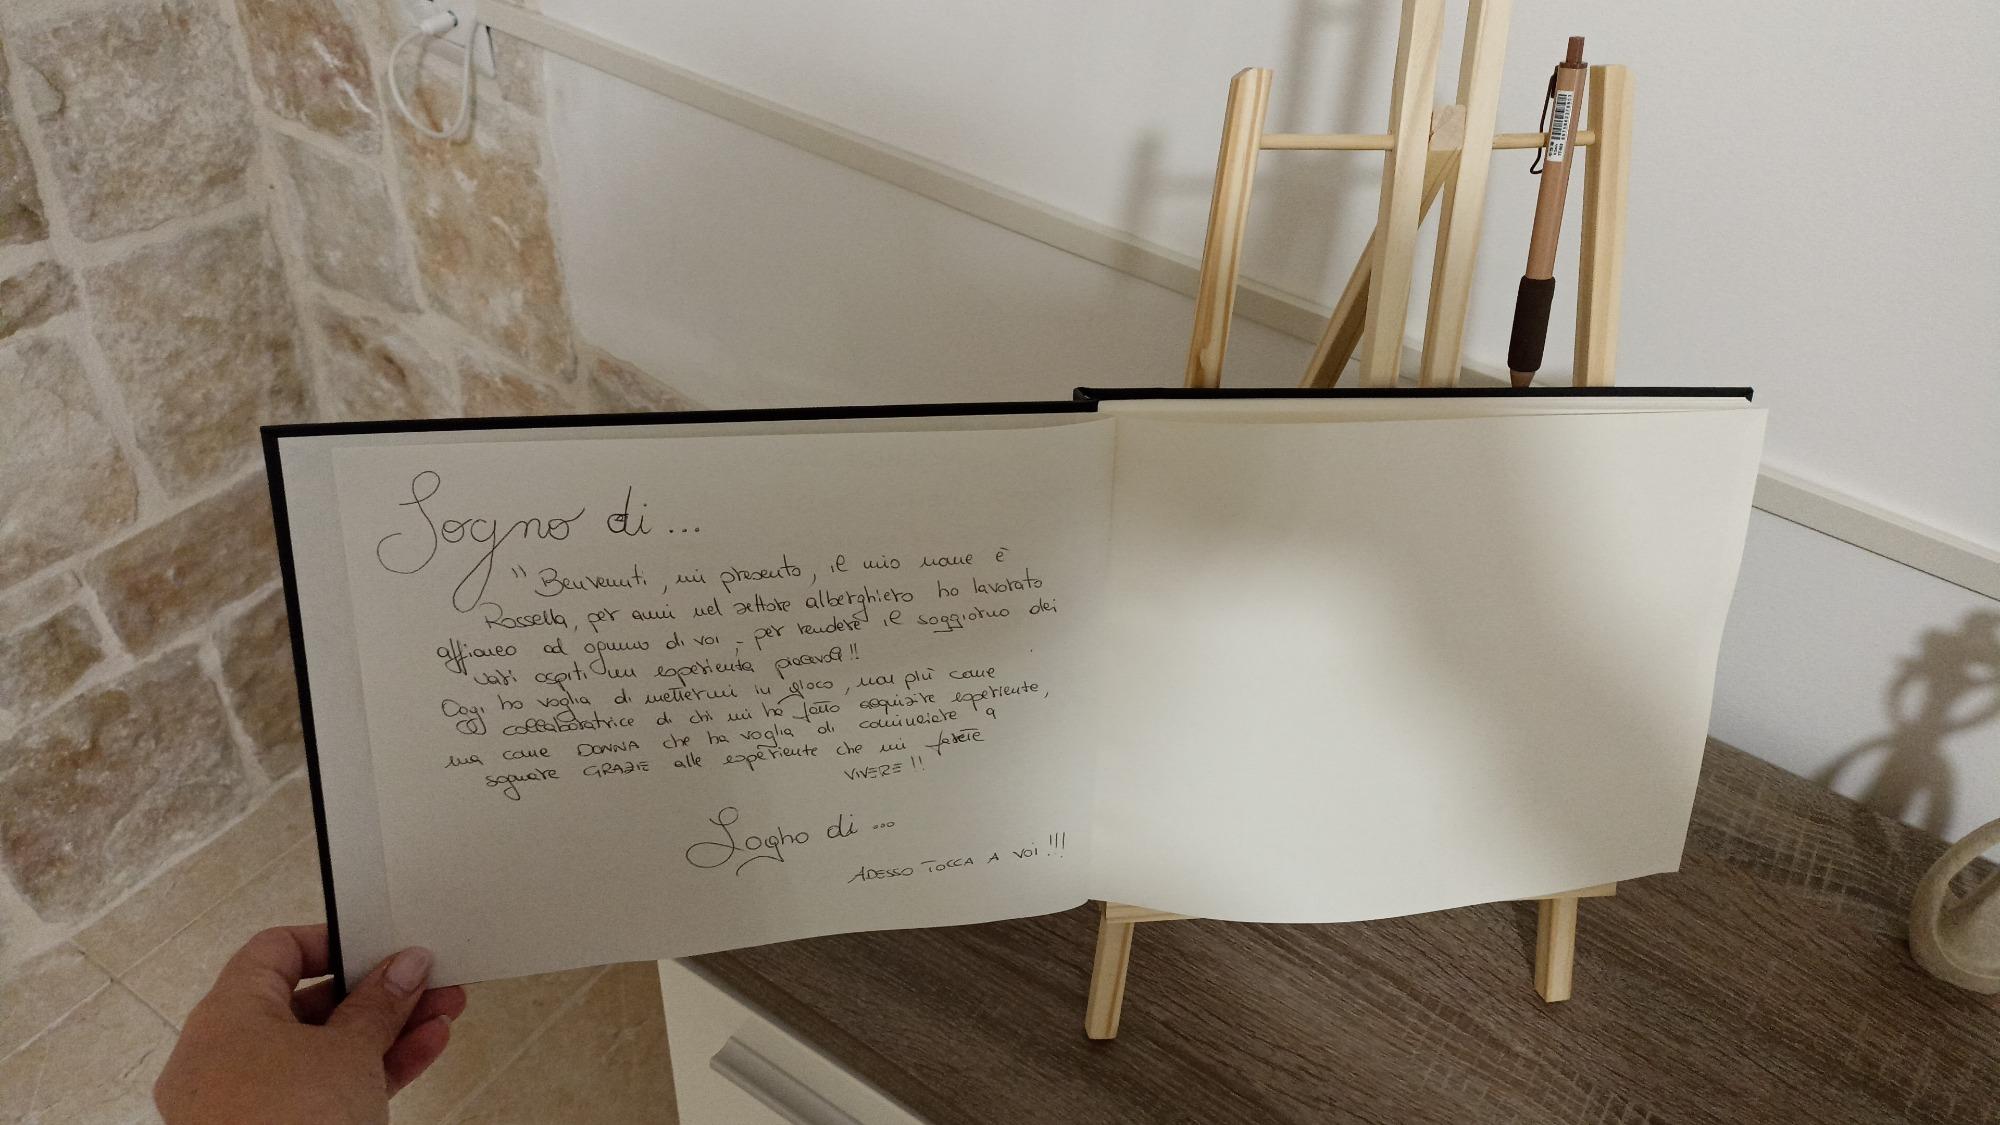 Sogno di...
"Benvenuti, mi presento, il mio nome è
Rossella, per anni nel settore alberghiero ho lavorato
affianco ad ognuno di voi, per rendere il soggiorno dei
vari ospiti un esperienza piacevole!!
Oggi ho voglia di mettermi in gioco, non più come
collaboratrice di chi mi ha fatto acquisire esperienze,
ma come DONNA che ha voglia di cominciare a
sognare GRAZIE alle esperienze che mi farete
VIVERE!!
Sogno di...
ADESSO TOCCA A VOI!!!